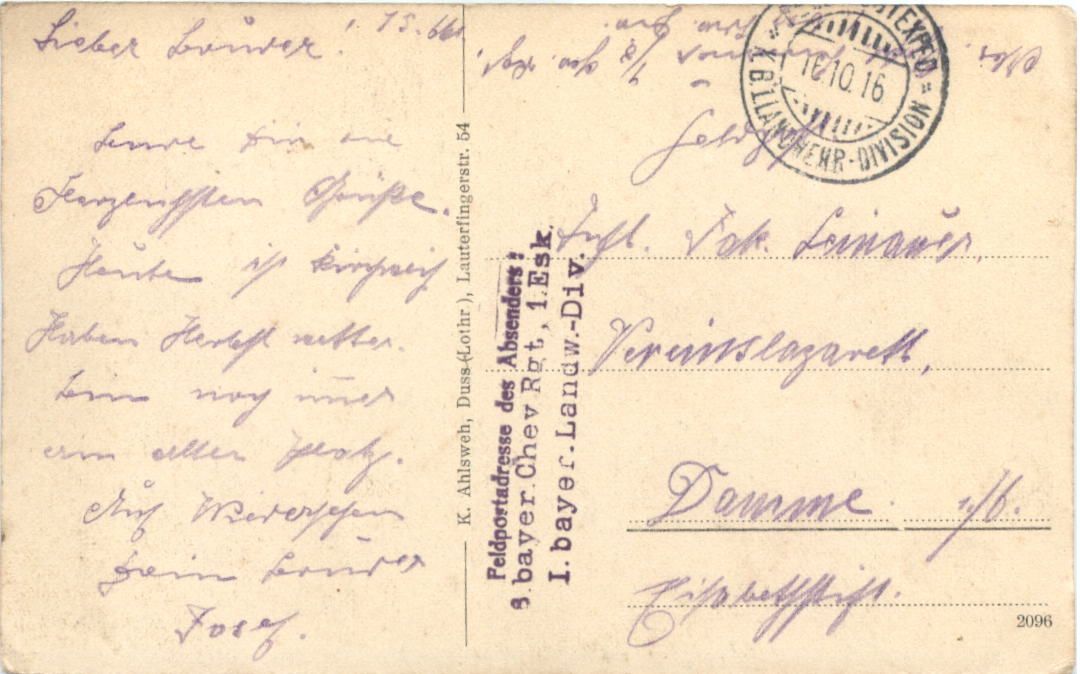 Lieber Bruder! 15.
Sende dir die
Herzlichsten Grüße.
Heute ist Kirchweih
Haben Herbstwetter.
Bin noch immer
am alten Platz.
Auf Wiedersehen
Dein Bruder
Josef.
K. Ahlsweh, Duss (Lothr.), Lauterfingerstr. 54
Feldpostadresse des Absenders:
8.bayer.Chev Rgt, 1.Esk.
I.bayer.Landw.-Div.
K.B.1.LANDWEHR-DIVISION
16.10.16
Feldpost
Inft. Jok.
Vereinslazarett,
Damme i/
Elisabethstift.
2096